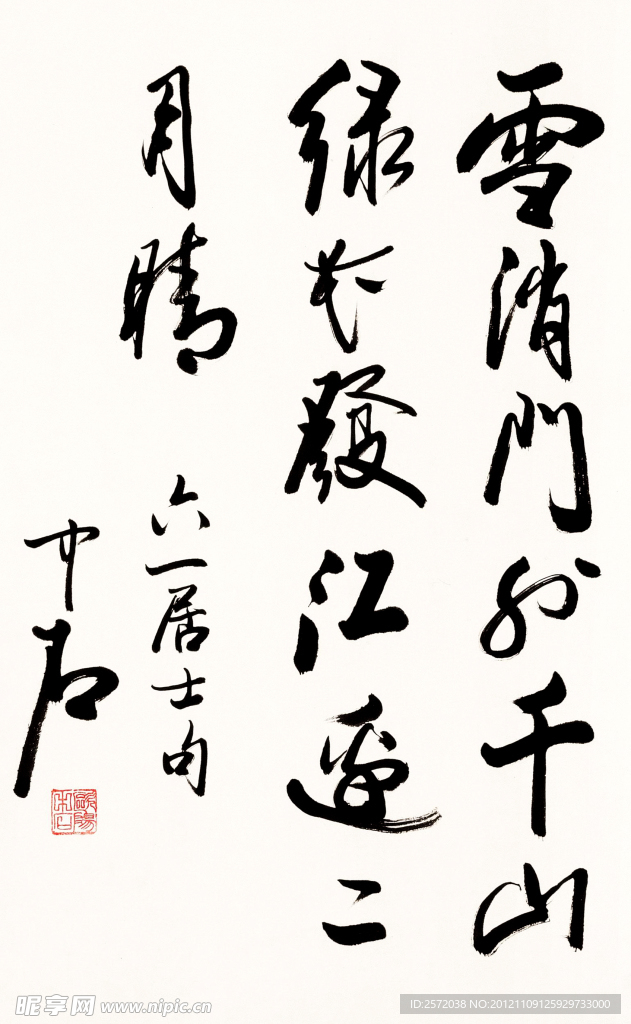 雪消門外千山
绿花發江邊二
月晴
六一居士句
中石
歐陽中石
昵享网 www.nipic.cn
ID:2572038 NO:20121109125929733000